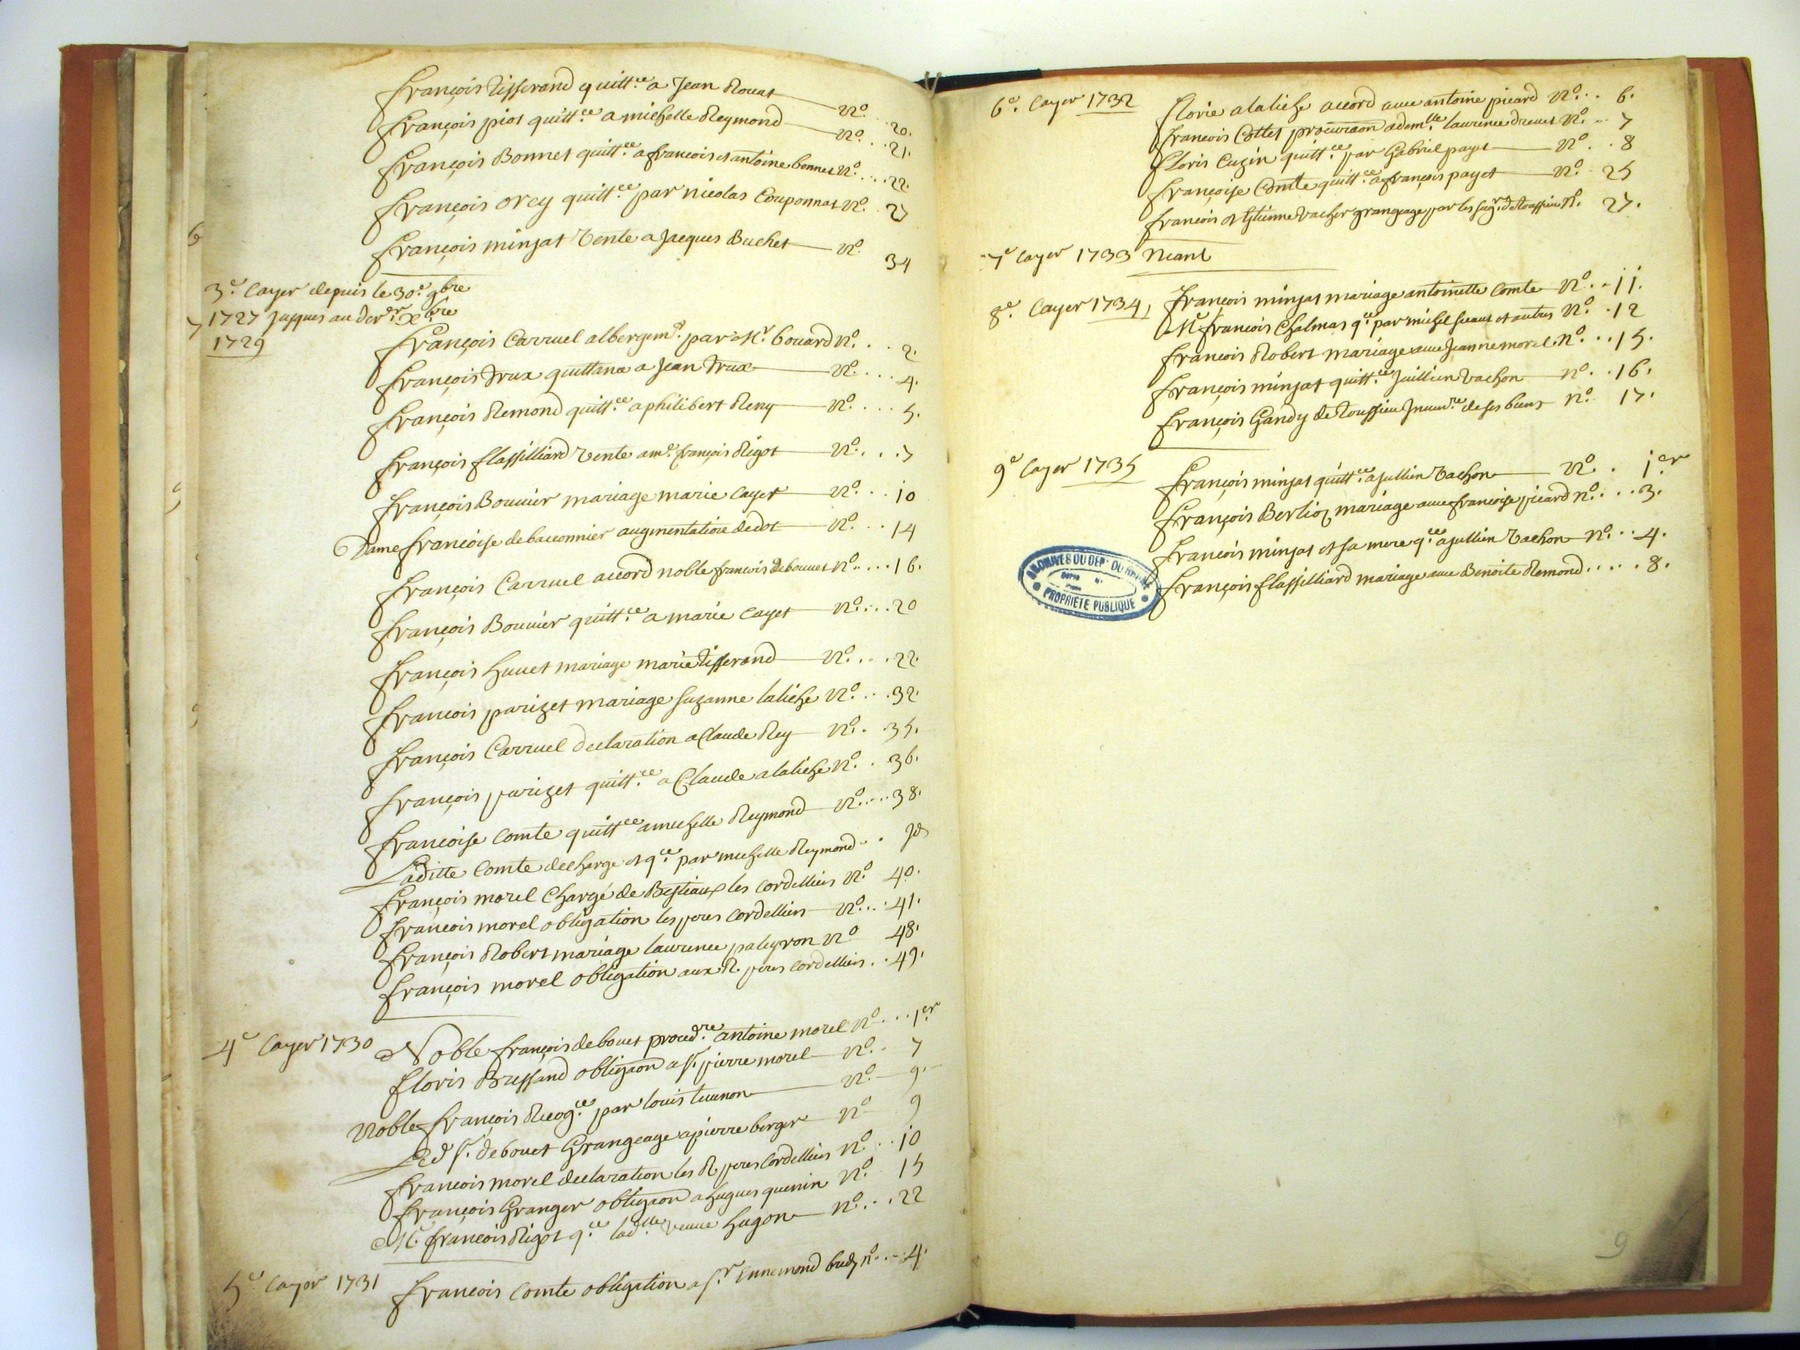 françois tisserand quitt.ce a Jean Rouat N.o .. 20.
françois piot quitt.ce a michelle Reymond N.o .. 21.
françois Bonnet quitt.ce a francois et antoine bonnet N.o ... 22.
françois orcy quitt.ce par nicolas Couponnat N.o 27
françois minjat Vente a Jacques Buchet N.o 34
3.e Cayer depuis le 30.e 9bre
1727 Jusques au der.r Xbre
1729
françois Carruel albergem.t par M.r bouard N.o .. 2.
françois Drux quittance a Jean Drux N.o ... 4.
françois Remond quitt.ce a philibert Remy N.o .... 5.
françois flassilliard Vente a m.e françois Rigot N.o ... 7
françois Bouvier mariage marie Cayet N.o .. 10
Dame francoise de bauonnier augmentation de dot N.o .. 14
françois Carruel accord noble francois de bouvet N.o ... 16.
françois Bouvier quitt.ce a marie Cayet N.o ... 20
françois huvet mariage marie tisserand N.o ... 22.
francois parizet mariage suzanne laliche N.o ... 32.
françois Carruel declaration a Claude Rey N.o . 35.
françois parizet quitt.ce a Claude alaliche N.o . 36.
françoise Comte quitt.ce a michelle Reymond N.o .... 38.
Laditte Comte decharge et q.ce par michelle Reymond . . Jd
françois morel Chargé de Bestiaux les Cordelliers N.o 40.
francois morel obligation les peres Cordelliers N.o ... 41.
françois Robert mariage laurence paleyron N.o 48.
françois morel obligation aux R. peres Cordelliers .. 49.
4.e Cayer 1730
Noble françois de bouet proced.re antoine morel N.o ... 1.er
floris Bressand obligaon a s.r pierre morel N.o . 7
Noble françois Recog.ce par louis N.o 9.
Led s.r de bouet Grangeage a pierre berger N.o 9
francois morel declaration les R. peres Cordelliers N.o .. 10
françois Granger obligaon a hugues quenin N.o 15
M.e francois Rigot q.ce lad.lle veuve hugon N.o ... 22
5.e Cayer 1731
francois Comte obligation a s.r Ennemond n.o ... 4.
6.e Cayer 1732
florie alaliche accord avec antoine picard N.o .. 6.
francois Cottet procuraon a dem.lle laurence drevet N.o .. 7
floris Cuzin quitt.ce par Gabriel payet N.o . 8
françoise Comte quitt.ce a françois payet N.o . 25
francois et Etienne Vacher grangeage par les N.o 27.
7.e Cayer 1733 Neant
8.e Cayer 1734,
françois minjat mariage antoinette Comte N.o . 11.
M.e françois Chalmas q.ce par michel et autres N.o . 12
francois Robert mariage avec Jeanne morel N.o ... 15.
françois minjat quitt.ce Jullien Vachon n.o .. 16.
françois Gandy de Roussieu Inven.re de ses biens n.o 17.
9.e Cayer 1735
françois minjat quitt.ce a jullien Vachon N.o . 1.er
françois Berlioz mariage avec francoise picard n.o ... 3.
francois minjat et sa mere q.ce a jullien Vachon N.o ... 4.
françois flassilliard mariage avec Benoite Remond ..... 8.
ARCHIVES DU DEP.T DU RHONE
PROPRIÉTÉ PUBLIQUE
9